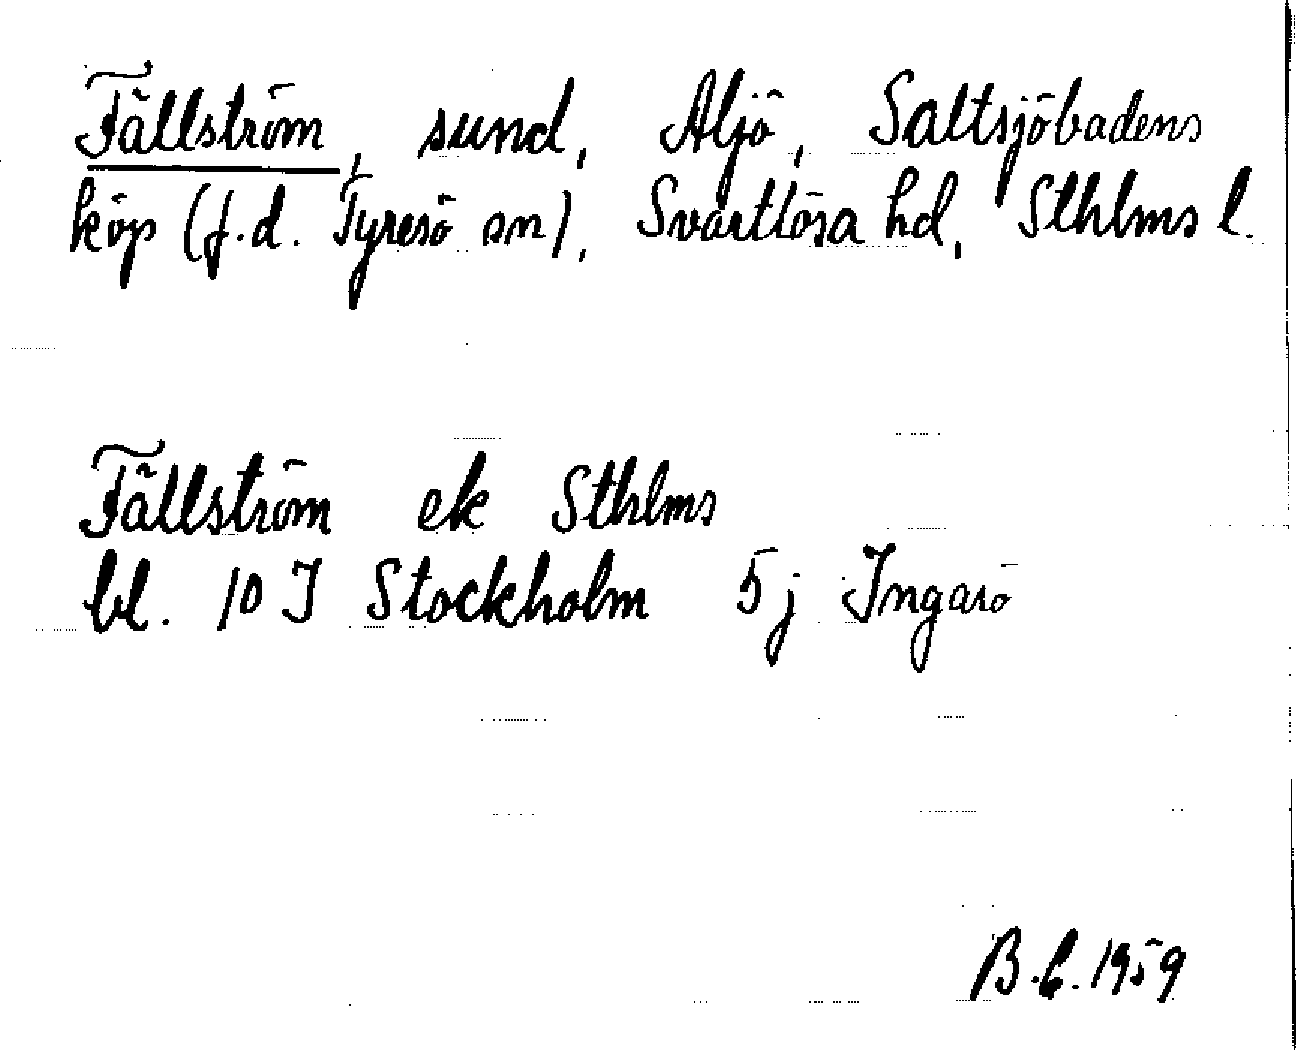 Fällström, sund, Aljö, Saltsjöbadens
köp (f.d. Tyresö sn), Svartlösa hd, Sthlms l.
Fällström ek Sthlms
bl. 10 I Stockholm 5j Ingarö
B.C. 1959